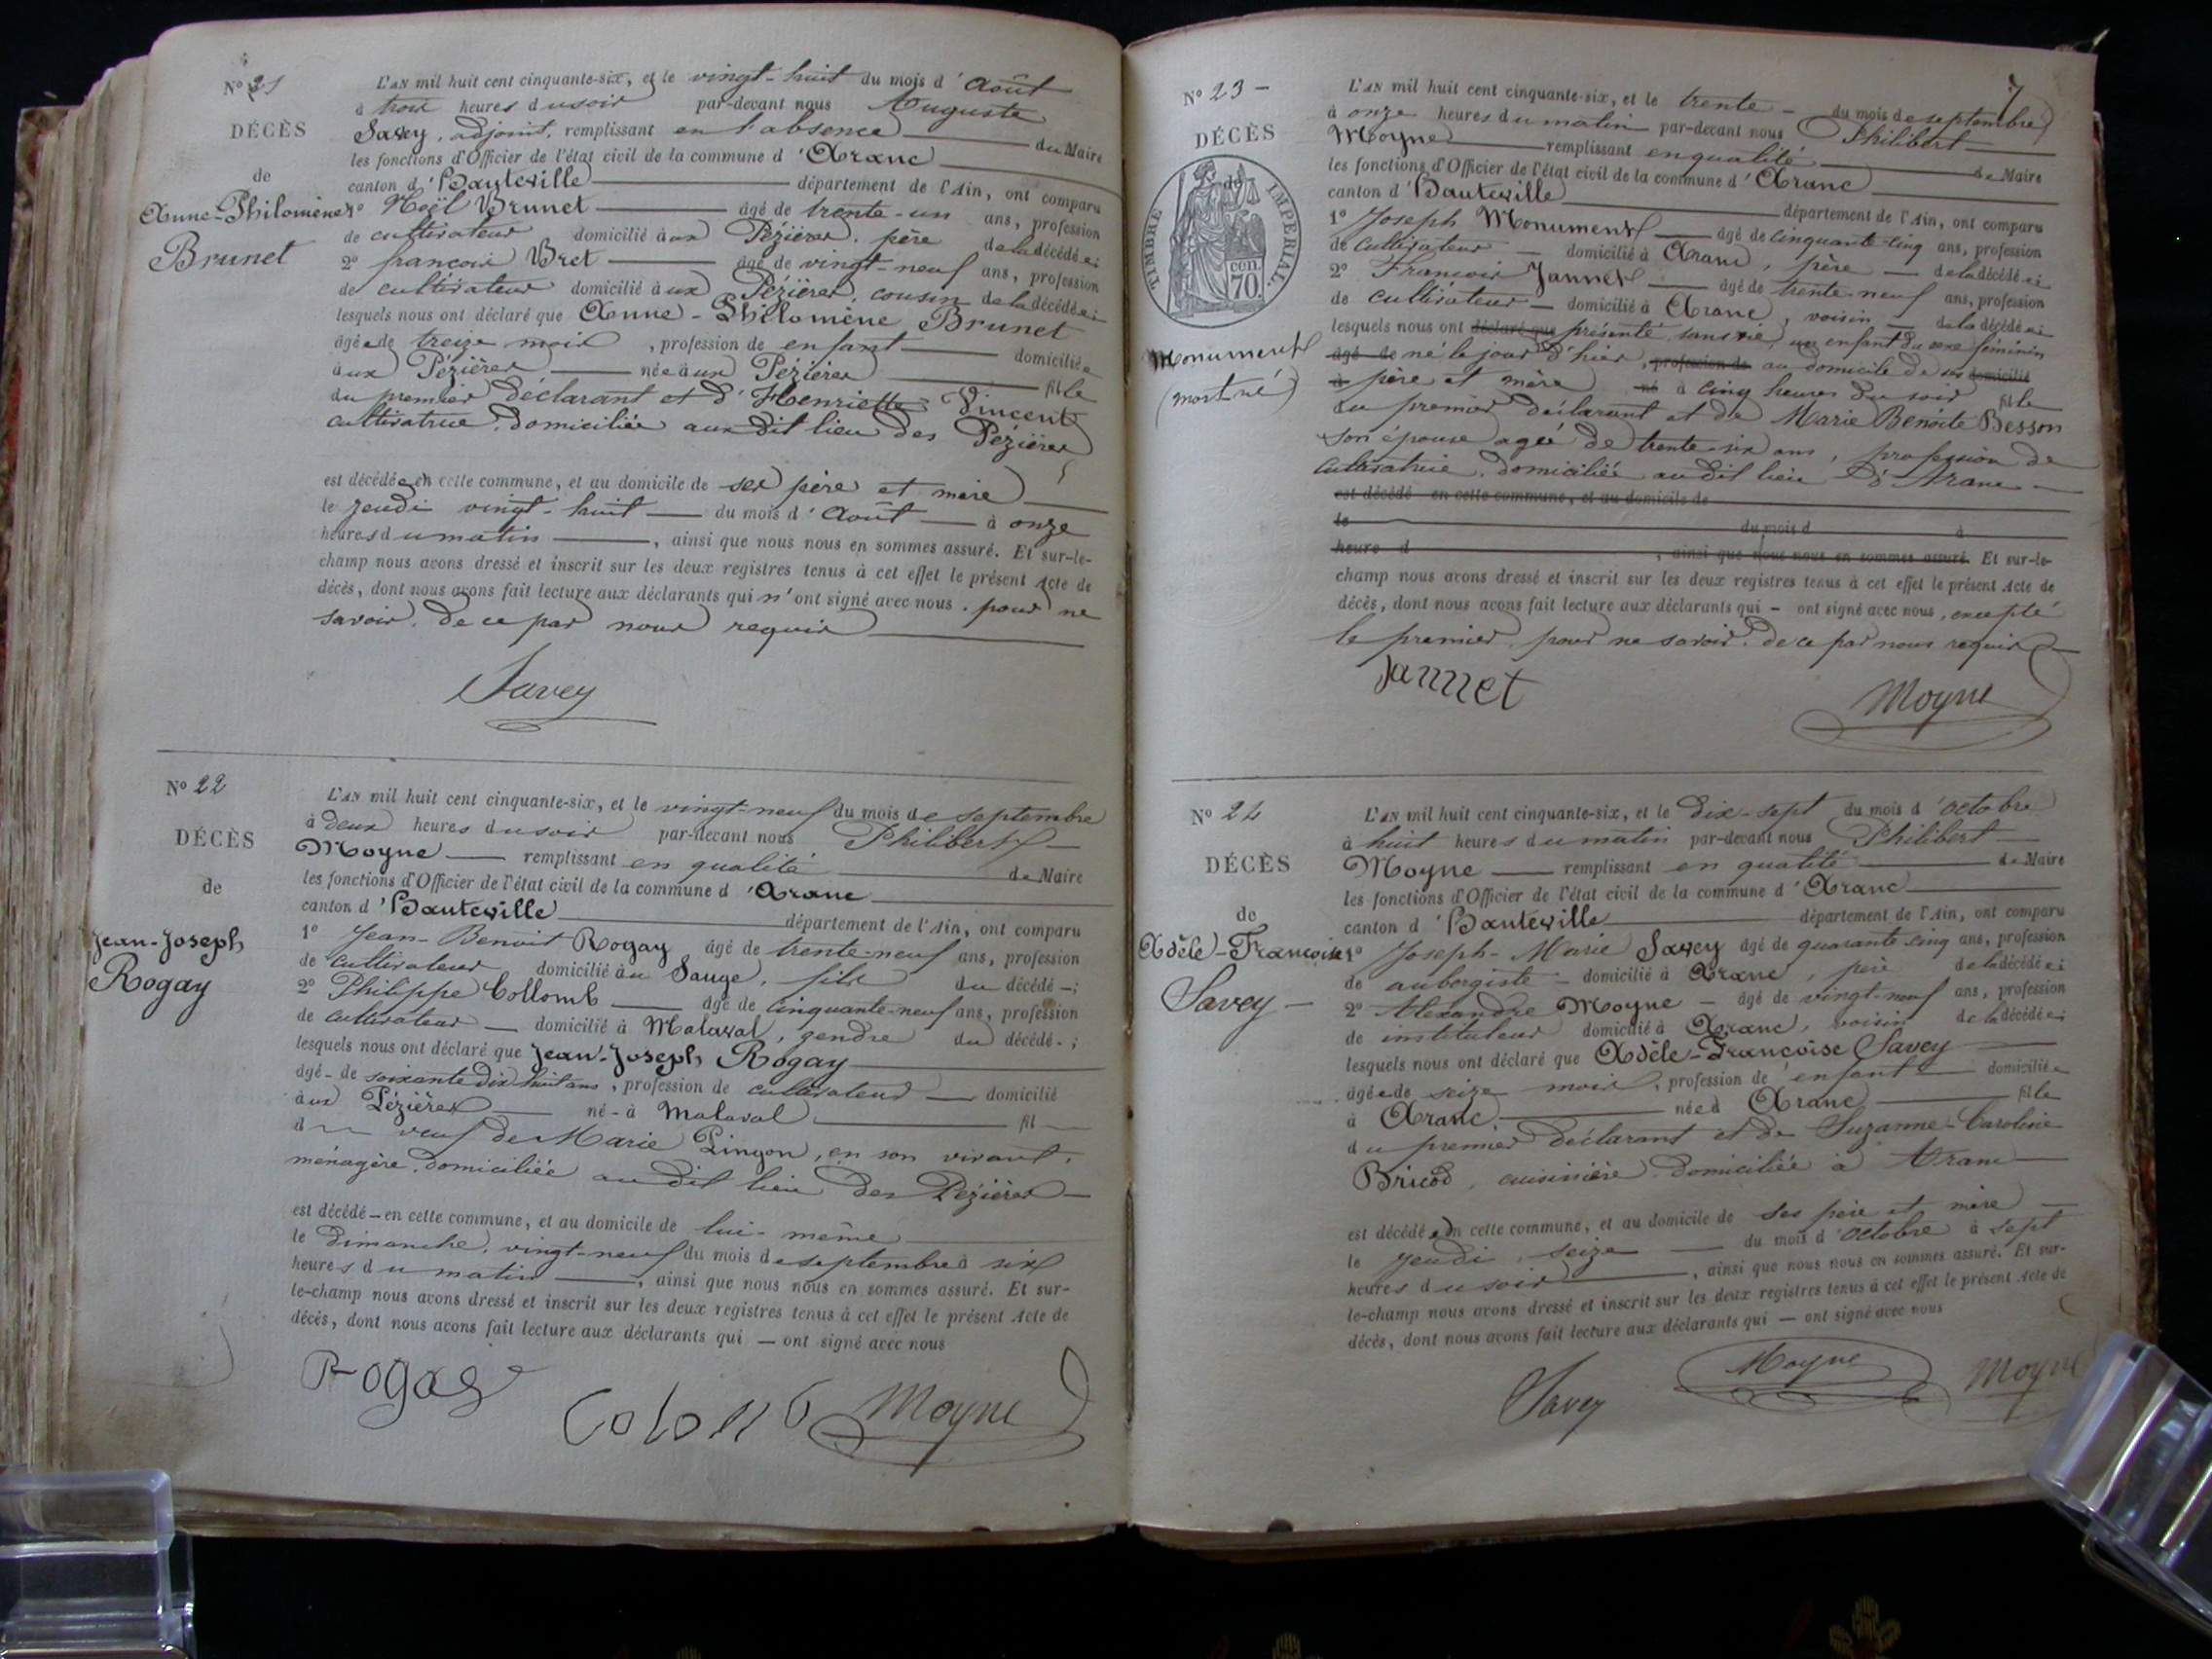 Nº 21
DÉCÈS
de
Anne-Philomène
Brunet
L'AN mil huit cent cinquante-six, et le vingt-huit du mois d'Août
à trois heures du soir par-devant nous Auguste
Savey, adjoint, remplissant en l'absence du Maire
les fonctions d'Officier de l'état civil de la commune d'Aranc
canton d'Hauteville département de l'Ain, ont comparu
1º Noël Brunet âgé de trente-un ans, profession
de cultivateur domicilié aux Pézières, père de la décédée;
2º françois Bret âgé de vingt-neuf ans, profession
de cultivateur domicilié aux Pézières, cousin de la décédée;
lesquels nous ont déclaré que Anne-Philomène Brunet
âgée de treize mois, profession de enfant domiciliée
aux Pézières née aux Pézières fille
du premier déclarant et d'Henriette Vincent
cultivatrice, domiciliée aux dit lieu des Pézières
est décédée en cette commune, et au domicile de ses père et mère
le jeudi vingt-huit du mois d'Août à onze
heures du matin, ainsi que nous nous en sommes assuré. Et sur-le-
champ nous avons dressé et inscrit sur les deux registres tenus à cet effet le présent Acte de
décès, dont nous avons fait lecture aux déclarants qui n'ont signé avec nous, pour ne
savoir, de ce par nous requis
Savey
Nº 22
DÉCÈS
de
Jean-Joseph
Rogay
L'AN mil huit cent cinquante-six, et le vingt-neuf du mois de septembre
à deux heures du soir par-devant nous Philibert
Moyne remplissant en qualité de Maire
les fonctions d'Officier de l'état civil de la commune d'Aranc
canton d'Hauteville département de l'Ain, ont comparu
1º Jean-Benoit Rogay âgé de trente-neuf ans, profession
de cultivateur domicilié au Sauge, fils du décédé;
2º Philippe Collomb âgé de cinquante-neuf ans, profession
de cultivateur domicilié à Malaval, gendre du décédé;
lesquels nous ont déclaré que Jean-Joseph Rogay
âgé de soixante dix huit ans, profession de cultivateur domicilié
aux Pézières né à Malaval fil
d veuf de Marie Pingon, en son vivant,
ménagère, domiciliée au dit lieu des Pézières
est décédé en cette commune, et au domicile de lui-même
le Dimanche, vingt-neuf du mois de septembre à six
heures du matin, ainsi que nous nous en sommes assuré. Et sur-
le-champ nous avons dressé et inscrit sur les deux registres tenus à cet effet le présent Acte de
décès, dont nous avons fait lecture aux déclarants qui ont signé avec nous
Rogay Colomb Moyne
7
Nº 23
DÉCÈS
de
TIMBRE IMPÉRIAL
cen. 70.
Monument
(mort né)
L'AN mil huit cent cinquante-six, et le trente du mois de septembre
à onze heures du matin par-devant nous Philibert
Moyne remplissant en qualité de Maire
les fonctions d'Officier de l'état civil de la commune d'Aranc
canton d'Hauteville département de l'Ain, ont comparu
1º Joseph Monument âgé de cinquante-cinq ans, profession
de cultivateur domicilié à Aranc, père de la décédée;
2º François Jannet âgé de trente-neuf ans, profession
de cultivateur domicilié à Aranc, voisin de la décédée;
lesquels nous ont déclaré que présenté sans vie, un enfant du sexe féminin
âgé de né le jour d'hier, profession de au domicile de ses domicilié
à père et mère né à cinq heures du soir fille
du premier déclarant et de Marie Benoîte Besson
son épouse agée de trente six ans, profession de
cultivatrice, domiciliée au dit lieu d'Aranc
est décédé en cette commune, et au domicile de
le du mois d à
heure d, ainsi que nous nous en sommes assuré. Et sur-le-
champ nous avons dressé et inscrit sur les deux registres tenus à cet effet le présent Acte de
décès, dont nous avons fait lecture aux déclarants qui ont signé avec nous, excepté
le premier, pour ne savoir, de ce par nous requis
Jannet Moyne
Nº 24
DÉCÈS
de
Adèle-Françoise
Savey
L'AN mil huit cent cinquante-six, et le Dix-sept du mois d'octobre
à huit heures du matin par-devant nous Philibert
Moyne remplissant en qualité de Maire
les fonctions d'Officier de l'état civil de la commune d'Aranc
canton d'Hauteville département de l'Ain, ont comparu
1º Joseph-Marie Savey âgé de quarante-cinq ans, profession
de aubergiste domicilié à Aranc, père de la décédée;
2º Alexandre Moyne âgé de vingt-neuf ans, profession
de instituteur domicilié à Aranc, voisin de la décédée;
lesquels nous ont déclaré que Adèle-Françoise Savey
âgée de seize mois, profession de enfant domiciliée
à Aranc, née à Aranc fille
du premier déclarant et de Suzanne-Caroline
Bricod, cuisinière, domiciliée à Aranc
est décédée en cette commune, et au domicile de ses père et mère
le jeudi, seize du mois d'octobre à sept
heures du soir, ainsi que nous nous en sommes assuré. Et sur-
le-champ nous avons dressé et inscrit sur les deux registres tenus à cet effet le présent Acte de
décès, dont nous avons fait lecture aux déclarants qui ont signé avec nous
Savey Moyne Moyne